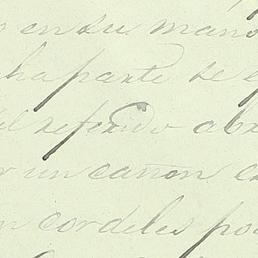 en su mano
ha parte se
el referido abr
r un cañon c
n cordeles po